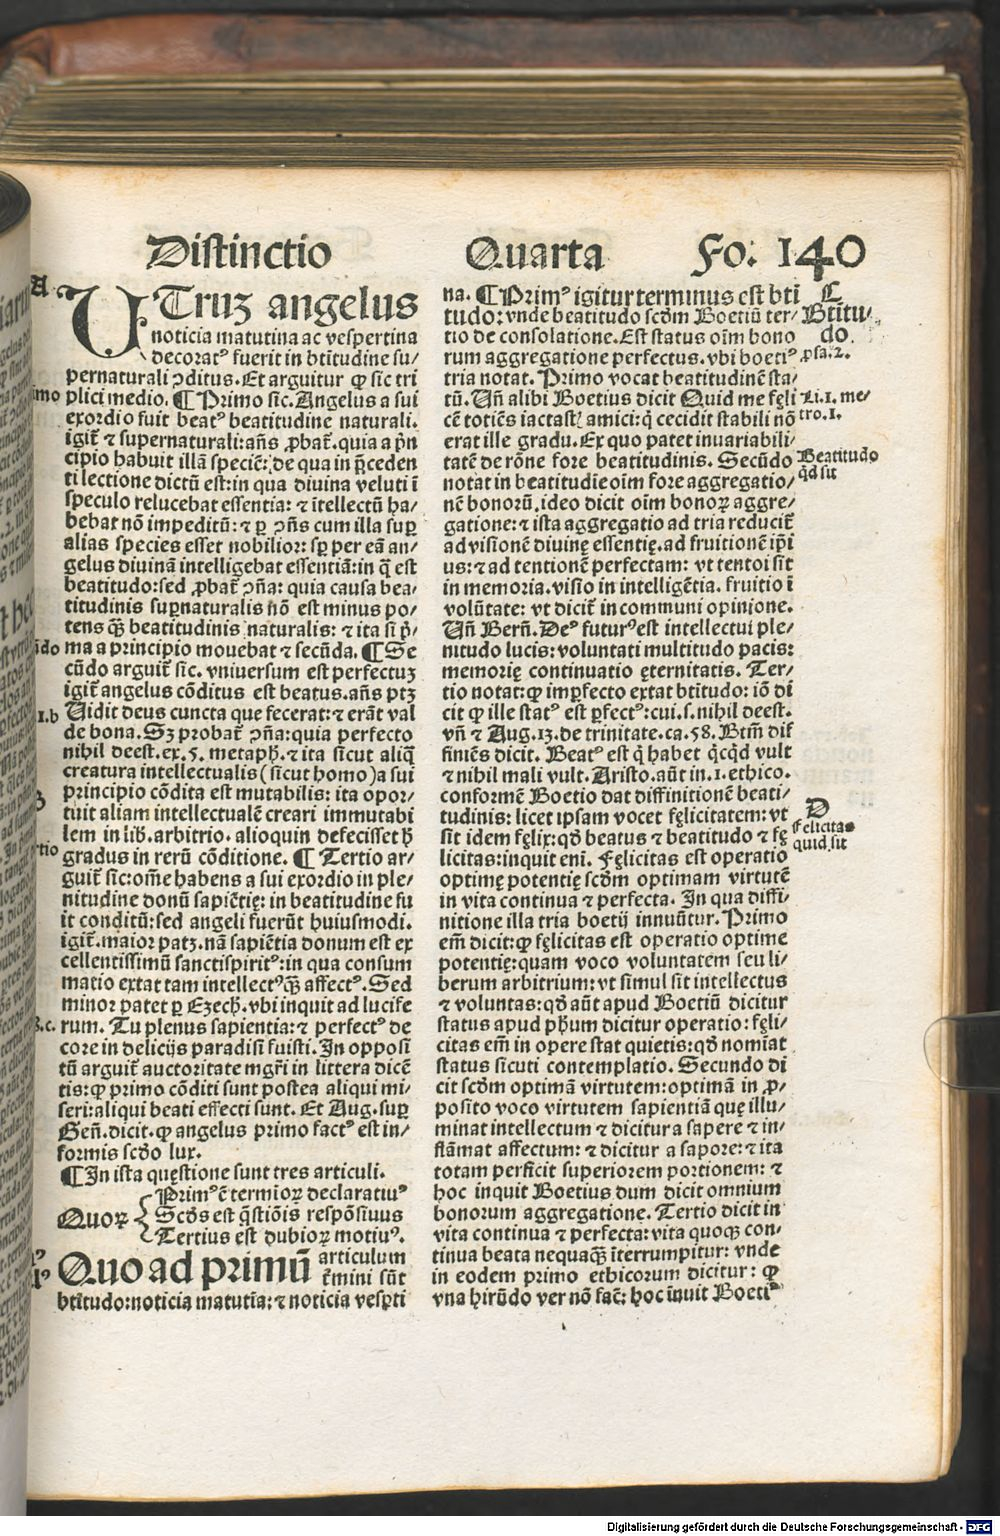 Distinctio Quarta Fo: 140
A
UTruʒ angelus
noticia matutina ac vespertina
decoratꝰ fuerit in btitudine su/
pernaturali ↄditus. Et arguitur ꝙ sic tri
plici medio. ¶ Primo sic. Angelus a sui
exordio fuit beatꝰ beatitudine naturali.
igit̃ ⁊ supernaturali: añs ꝓbat̃. quia a pͥn
cipio habuit illã speciẽ: de qua in p̃ceden
ti lectione dictũ est: in qua diuina veluti ĩ
speculo relucebat essentia: ⁊ ĩtellectũ ha/
bebat nõ impeditũ: ⁊ ꝑ ↄñs cum illa suꝑ
alias species esset nobilior: sꝫ per eã an/
gelus diuinã intelligebat essentiã: in q̃ est
beatitudo: sed ꝓbat̃ ↄña: quia causa bea/
titudinis suꝑnaturalis nõ est minus po/
tens qꝫ̃ beatitudinis naturalis: ⁊ ita si pͥ/
ma a principio mouebat ⁊ secũda. ¶ Se
cũdo arguit̃ sic. vniuersum est perfectuʒ
igit̃ angelus cõditus est beatus. añs ptʒ
Uidit deus cuncta que fecerat: ⁊ erãt val
de bona. Sʒ probat̃ ↄña: quia perfecto
nihil deest. ex. 5. metapḣ. ⁊ ita sicut aliq̃
creatura intellectualis (sicut homo) a sui
principio cõdita est mutabilis: ita opor/
tuit aliam intellectualẽ creari immutabi
lem in lib̃. arbitrio. alioquin defecisset ḣ
gradus in rerũ cõditione. ¶ Tertio ar/
guit̃ sic: om̃e habens a sui exordio in ple/
nitudine donũ sapiẽtię: in beatitudine fu
it conditũ: sed angeli fuerũt huiusmodi.
igit̃. maior patʒ. nã sapiẽtia donum est ex
cellentissimũ sanctispiritꝰ: in qua consum
matio extat tam intellectꝰ qꝫ̃ affectꝰ. Sed
minor patet ꝑ Ezech. vbi inquit ad lucife
rum. Tu plenus sapientia: ⁊ perfectꝰ de
core in delicijs paradisi fuisti. In opposi
tũ arguit̃ auctoritate mgr̃i in littera dicẽ
tis: ꝙ primo cõditi sunt postea aliqui mi/
seri: aliqui beati effecti sunt. Et Aug. suꝑ
Geñ. dicit. ꝙ angelus primo factꝰ est in/
formis scđo lux.
¶ In ista quęstione sunt tres articuli.
Quoꝝ
Primꝰ ẽ termioꝝ declaratiuꝰ
Scđs est q̃stiõis respõsiuus
Tertius est dubioꝝ motiuꝰ.
Quo ad primũ articulum
t̃mini sũt
btitudo: noticia matutĩa: ⁊ noticia vesꝑti
na. ¶ Primꝰ igitur terminus est btĩ
tudo: vnde beatitudo scđm Boetiũ ter/
tio de consolatione. Est status oĩm bono
rum aggregatione perfectus. vbi boetiꝰ
tria notat. Primo vocat beatitudinẽ sta/
tũ. Uñ alibi Boetius dicit Quid me fęli
cẽ totiẽs iactastꝭ amici: q̃ cecidit stabili nõ
erat ille gradu. Ex quo patet inuariabili/
tatẽ de rõne fore beatitudinis. Secũdo
notat in beatitudĩe oĩm fore aggregatio/
nẽ bonorũ. ideo dicit oĩm bonoꝝ aggre/
gatione: ⁊ ista aggregatio ad tria reducit̃
ad visionẽ diuinę essentię. ad fruitionẽ ip̃i
us: ⁊ ad tentionẽ perfectam: vt tentoi sit
in memoria. visio in intelligẽtia. fruitio ĩ
volũtate: vt dicit̃ in communi opinione.
Uñ Berñ. Deꝰ futurꝰ est intellectui ple/
nitudo lucis: voluntati multitudo pacis:
memorię continuatio ęternitatis. Ter/
tio notat: ꝙ imꝑfecto extat btitudo: iõ di
cit ꝙ ille statꝰ est ꝑfectꝰ: cui. s. nihil deest.
vñ ⁊ Aug. 13. de trinitate. ca. 58. Btm̃ dif
finiẽs dicit. Beatꝰ est q̃ habet qͥcqͥd vult
⁊ nihil mali vult. Aristo. aũt in. 1. ethico.
conformẽ Boetio dat diffinitionẽ beati/
tudinis: licet ipsam vocet fęlicitatem: vt
sit idem fęlix: qđ beatus ⁊ beatitudo ⁊ fę
licitas: inquit enĩ. Fęlicitas est operatio
optimę potentię scđm optimam virtutẽ
in vita continua ⁊ perfecta. In qua diffi/
nitione illa tria boetij innuũtur. Primo
em̃ dicit: ꝙ fęlicitas est operatio optime
potentię: quam voco voluntatem seu li/
berum arbitrium: vt simul sit intellectus
⁊ voluntas: qđ aũt apud Boetiũ dicitur
status apud pḣum dicitur operatio: fęli/
citas em̃ in opere stat quietis: qđ nomĩat
status sicuti contemplatio. Secundo di
cit scđm optimã virtutem: optimã in ꝓ/
posito voco virtutem sapientiã quę illu/
minat intellectum ⁊ dicitur a sapere ⁊ in/
flãmat affectum: ⁊ dicitur a sapore: ⁊ ita
totam perficit superiorem portionem: ⁊
hoc inquit Boetius dum dicit omnium
bonorum aggregatione. Tertio dicit in
vita continua ⁊ perfecta: vita quoqꝫ con/
tinua beata nequaqꝫ̃ ĩterrumpitur: vnde
in eodem primo ethicorum dicitur: ꝙ
vna hirũdo ver nõ fac̃: hoc inuit Boetiꝰ
C
Btitu/
do.
ꝓsa. 2.
Li. 1. me/
tro. 1.
Beatitudo
qđ sit
D
Felicitas
quid sit
Digitalisierung gefördert durch die Deutsche Forschungsgemeinschaft - DFG